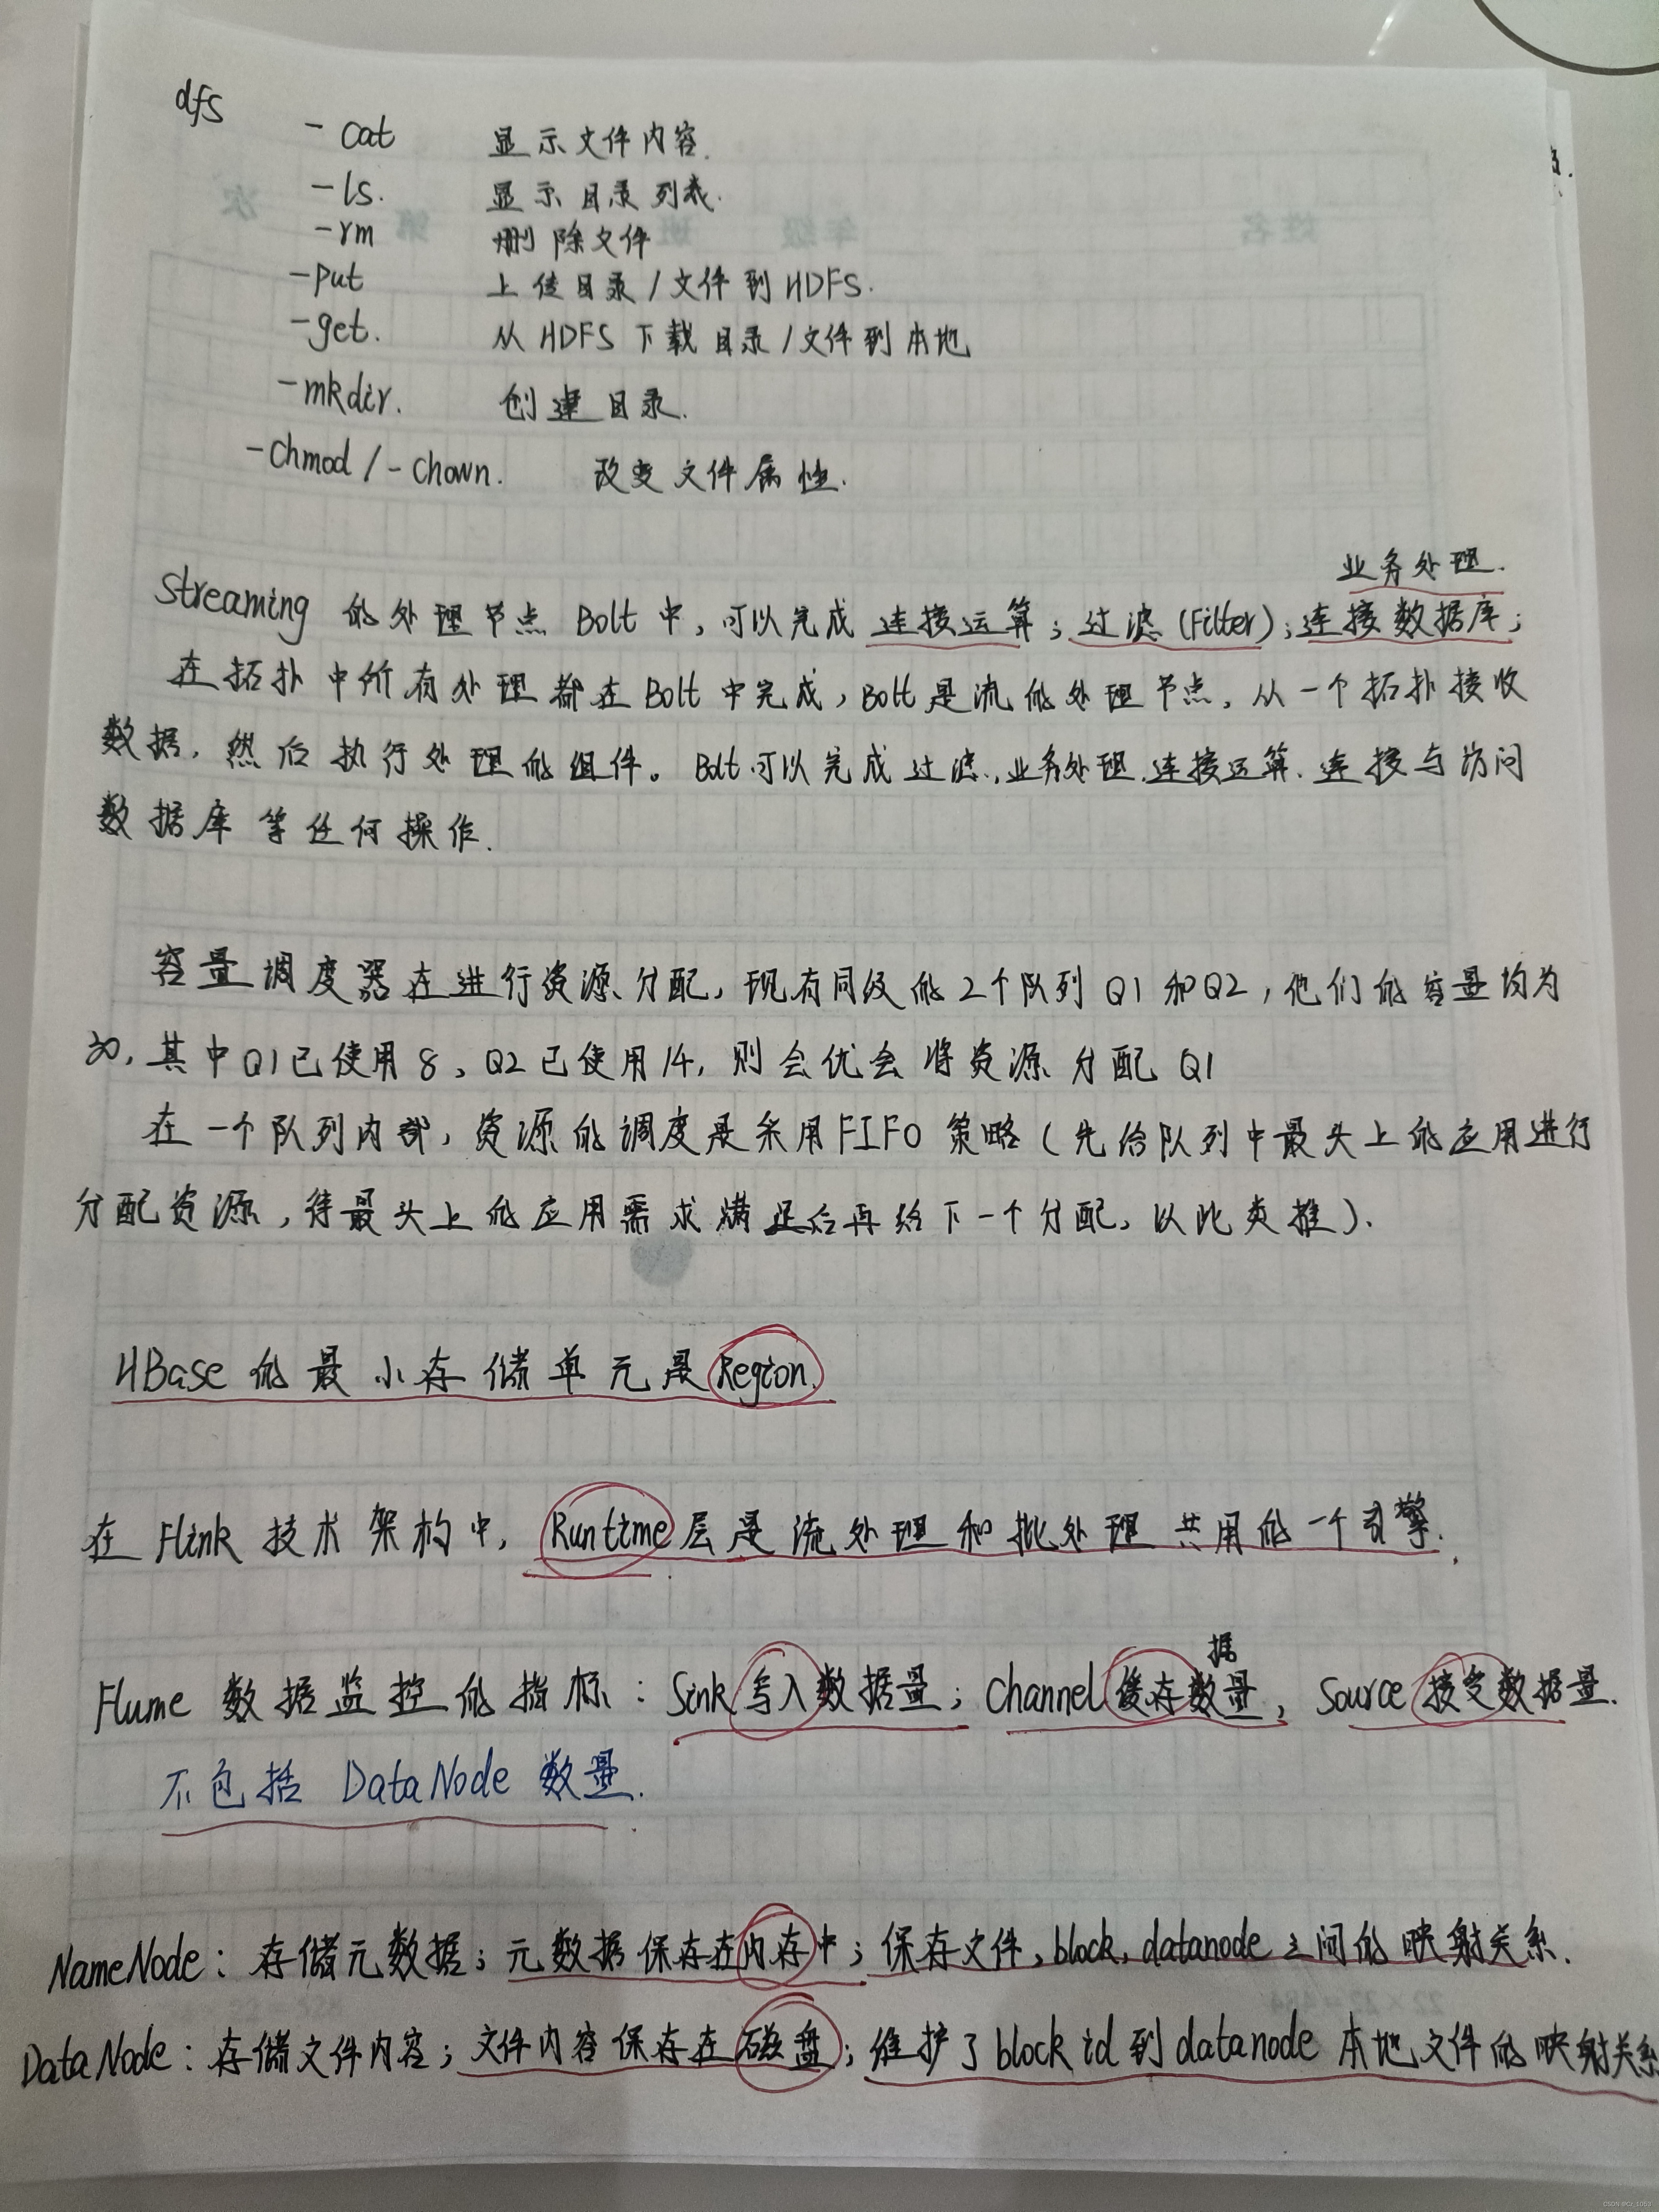 dfs
-cat 显示文件内容.
-ls. 显示目录列表.
-rm 删除文件
-put 上传目录/文件到HDFS.
-get. 从HDFS下载目录/文件到本地
-mkdir. 创建目录.
-chmod/-chown. 改变文件属性.
业务处理.
Streaming 的处理节点 Bolt 中,可以完成 连接运算;过滤(Filter);连接数据库;
在拓扑中所有处理都在Bolt中完成,Bolt是流的处理节点,从一个拓扑接收
数据,然后执行处理的组件。Bolt可以完成过滤、业务处理、连接运算、连接与访问
数据库等任何操作.
容量调度器在进行资源分配,现有同级的2个队列Q1和Q2,他们的容量均为
30,其中Q1已使用8、Q2已使用14,则会优会将资源分配Q1
在一个队列内部,资源的调度是采用FIFO策略(先给队列中最头上的应用进行
分配资源,待最头上的应用需求满足后再给下一个分配,以此类推).
HBase的最小存储单元是Region.
在Flink技术架构中,Runtime层是流处理和批处理共用的一个引擎.
据
Flume数据监控的指标:Sink写入数据量;Channel缓存数量,Source接受数据量.
不包括 DataNode 数量.
NameNode:存储元数据;元数据保存在内存中;保存文件,block,datanode之间的映射关系.
DataNode:存储文件内容;文件内容保存在磁盘;维护了block id到datanode本地文件的映射关系
姓名 年级 班 第 次
22×22=484